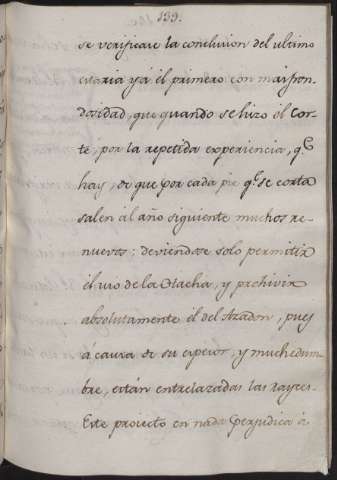 199.
se verificare la conclusion del ultimo
estaria ya él primero con mas fron-
dosidad, que quando se hizo él Cor-
te, por la repetida experiencia, q.e
hay, de que por cada pie q.e se corta
salen al año siguiente muchos re-
nuevos; deviendose solo permitir
él uso de la Hacha, y prohivir
absolutamente él del Azadon, pues
á causa de su espesor, y muchedum-
bre, están entrelazadas las rayces.
Este proiecto en nada perjudica á